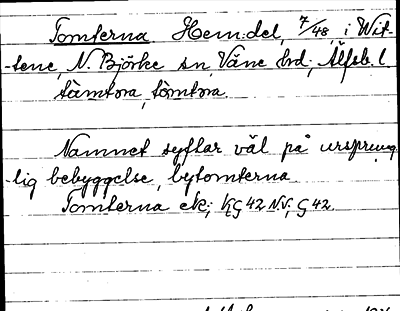 Tomterna. Hem.del, 7/48, i Wit-
-tene, N. Björke sn, Väne hd, Älfsb. l.
tàmtɷra, tòmtɷra.
Namnet syftar väl på ursprung
-lig bebyggelse, bytomterna.
Tomterna ek; KG 42 N.V., G 42.